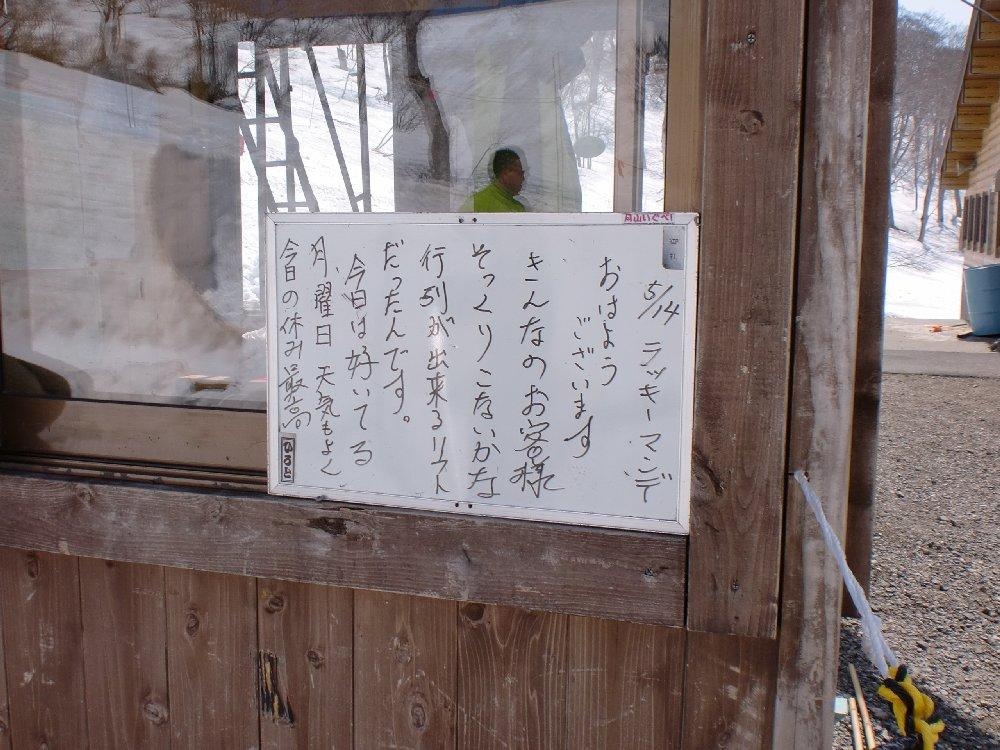 月山いくべ!
5/14 ラッキーマンデ
おはよう
ございます
きんなのお客様
そっくりこないかな
行列が出来るリフト
だったんです。
今日は好いてる
月曜日 天気もよく
今日の休み最高
ひろと